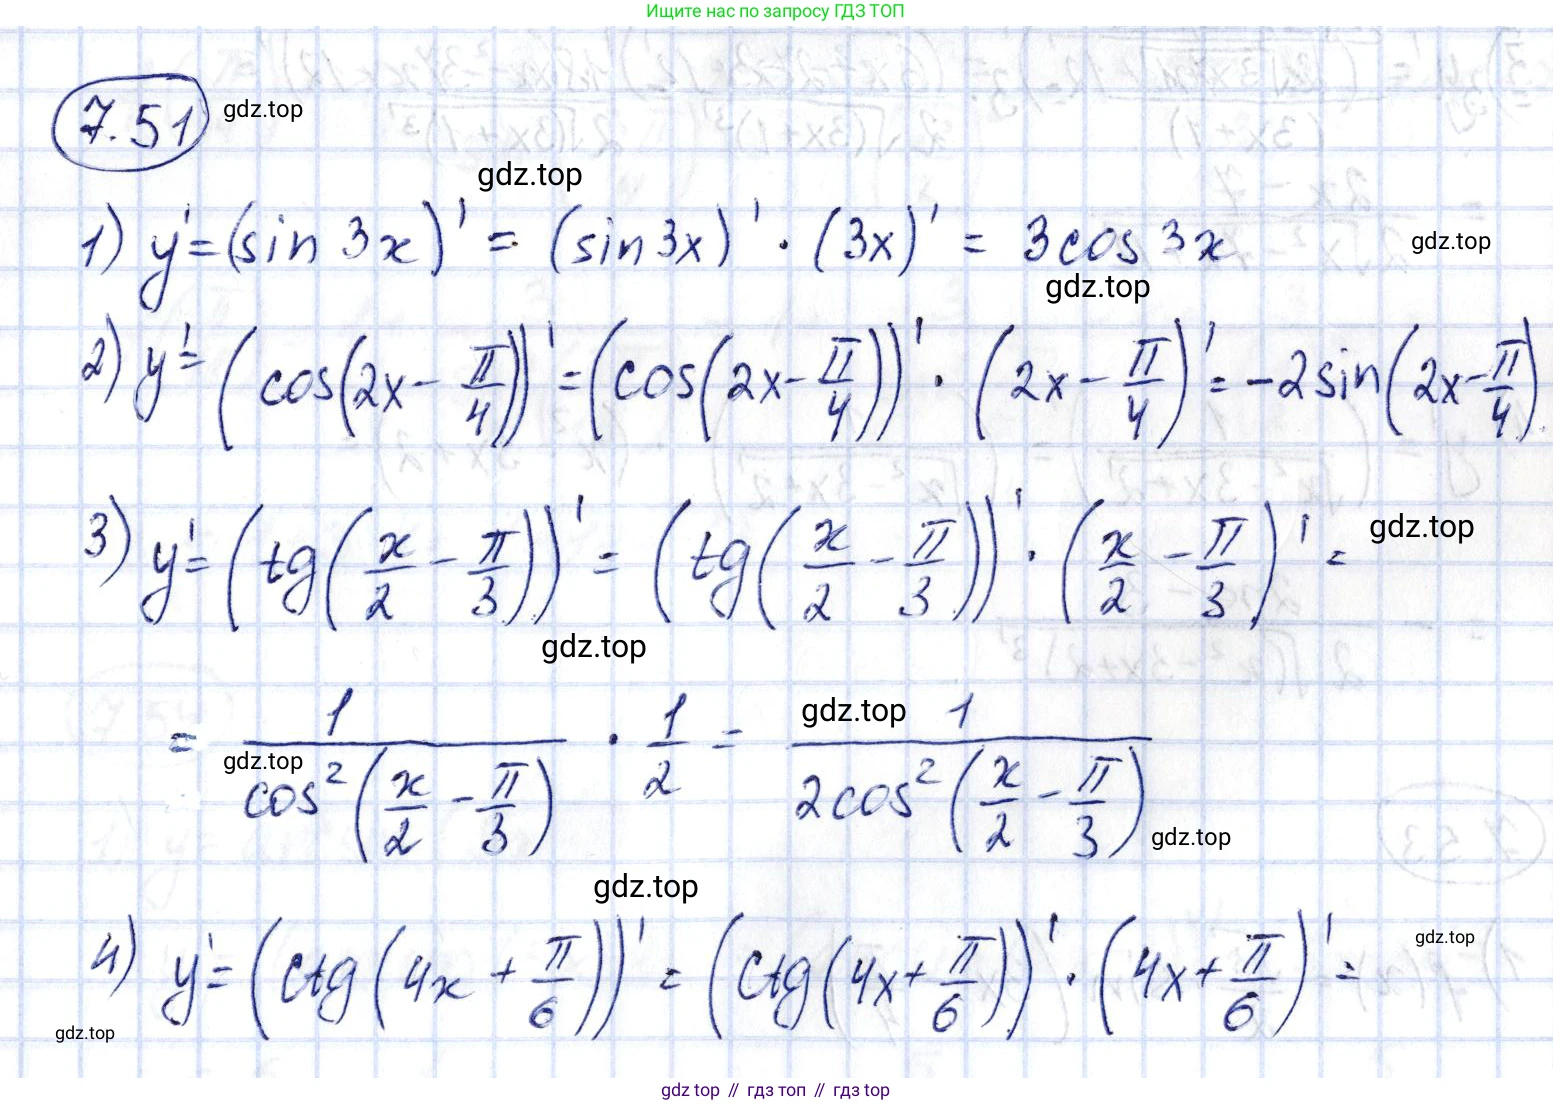 Ищите нас по запросу ГДЗ ТОП
7.51 gdz.top
gdz.top
1) y' = (sin 3x)' = (sin 3x)' · (3x)' = 3cos 3x gdz.top
gdz.top
2) y' = (cos(2x - π/4))' = (cos(2x - π/4))' · (2x - π/4)' = -2sin(2x - π/4)
3) y' = (tg(x/2 - π/3))' = (tg(x/2 - π/3))' · (x/2 - π/3)' = gdz.top
gdz.top
= 1/cos²(x/2 - π/3) · 1/2 = 1/2cos²(x/2 - π/3) gdz.top
gdz.top
gdz.top
gdz.top
4) y' = (ctg(4x + π/6))' = (ctg(4x + π/6))' · (4x + π/6)' = gdz.top
gdz.top
gdz top // гдз топ // gdz top